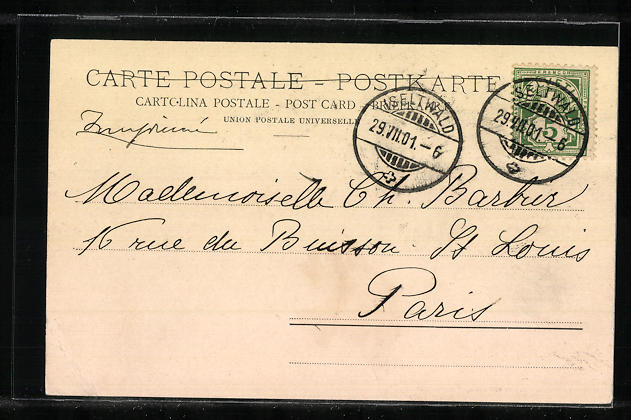 CARTE POSTALE – POSTKARTE
CARTOLINA POSTALE - POST CARD -
UNION POSTALE UNIVERSELLE
Imprimé
ISELTWALD
29.VII.01.–6
ISELTWALD
29.VII.01.–6
FRANCO
5
Mademoiselle Ch. Barbier
16 rue du Buisson. St Louis
Paris